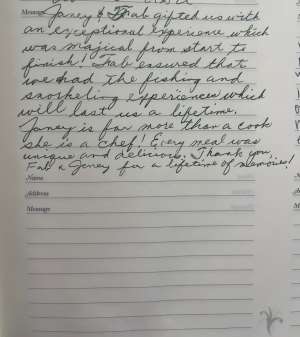 Message Janey & Fab gifted us with
an exceptional experience which
was magical from start to
finish! Fab assured that
we had the fishing and
snorkeling experiences which
will last us a lifetime.
Janey is far more than a cook
she is a chef! Every meal was
unique and delicious. Thank you
Fab & Janey for a lifetime of memories!
Name
Address
Message